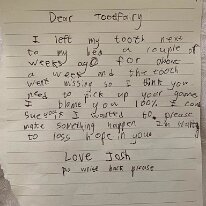 Dear Toothfairy
I left my tooth next
to my bed a couple of
weeks ago for about
a week and the tooth
went missing so I think you
need to pick up your game
I blame you 100% I could
sue you if I wanted to. please
make something happen I'm starting
to loss hope in you
Love Josh
ps write back please